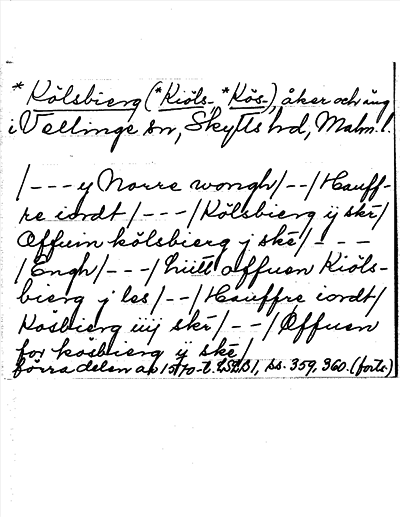 * Kölsbierg (*Kiöls-, *Kös-), åker och äng
i Vellinge sn, Skytts hd, Malm. l.
/---y Norre wongh/--/Hauff-
re iordt/---/Kölsbierg ij ske/
Offuin kölsbierg j ske/---
/Engh/---/hütt offuen Kiöls-
bierg j les/--/Hauffre iordt/
Kösbierg iiij ske/--/Offuen
for kösbierg ij ske/
förra delen av 1570-t. LSLB1, ss. 359, 360. (forts.)